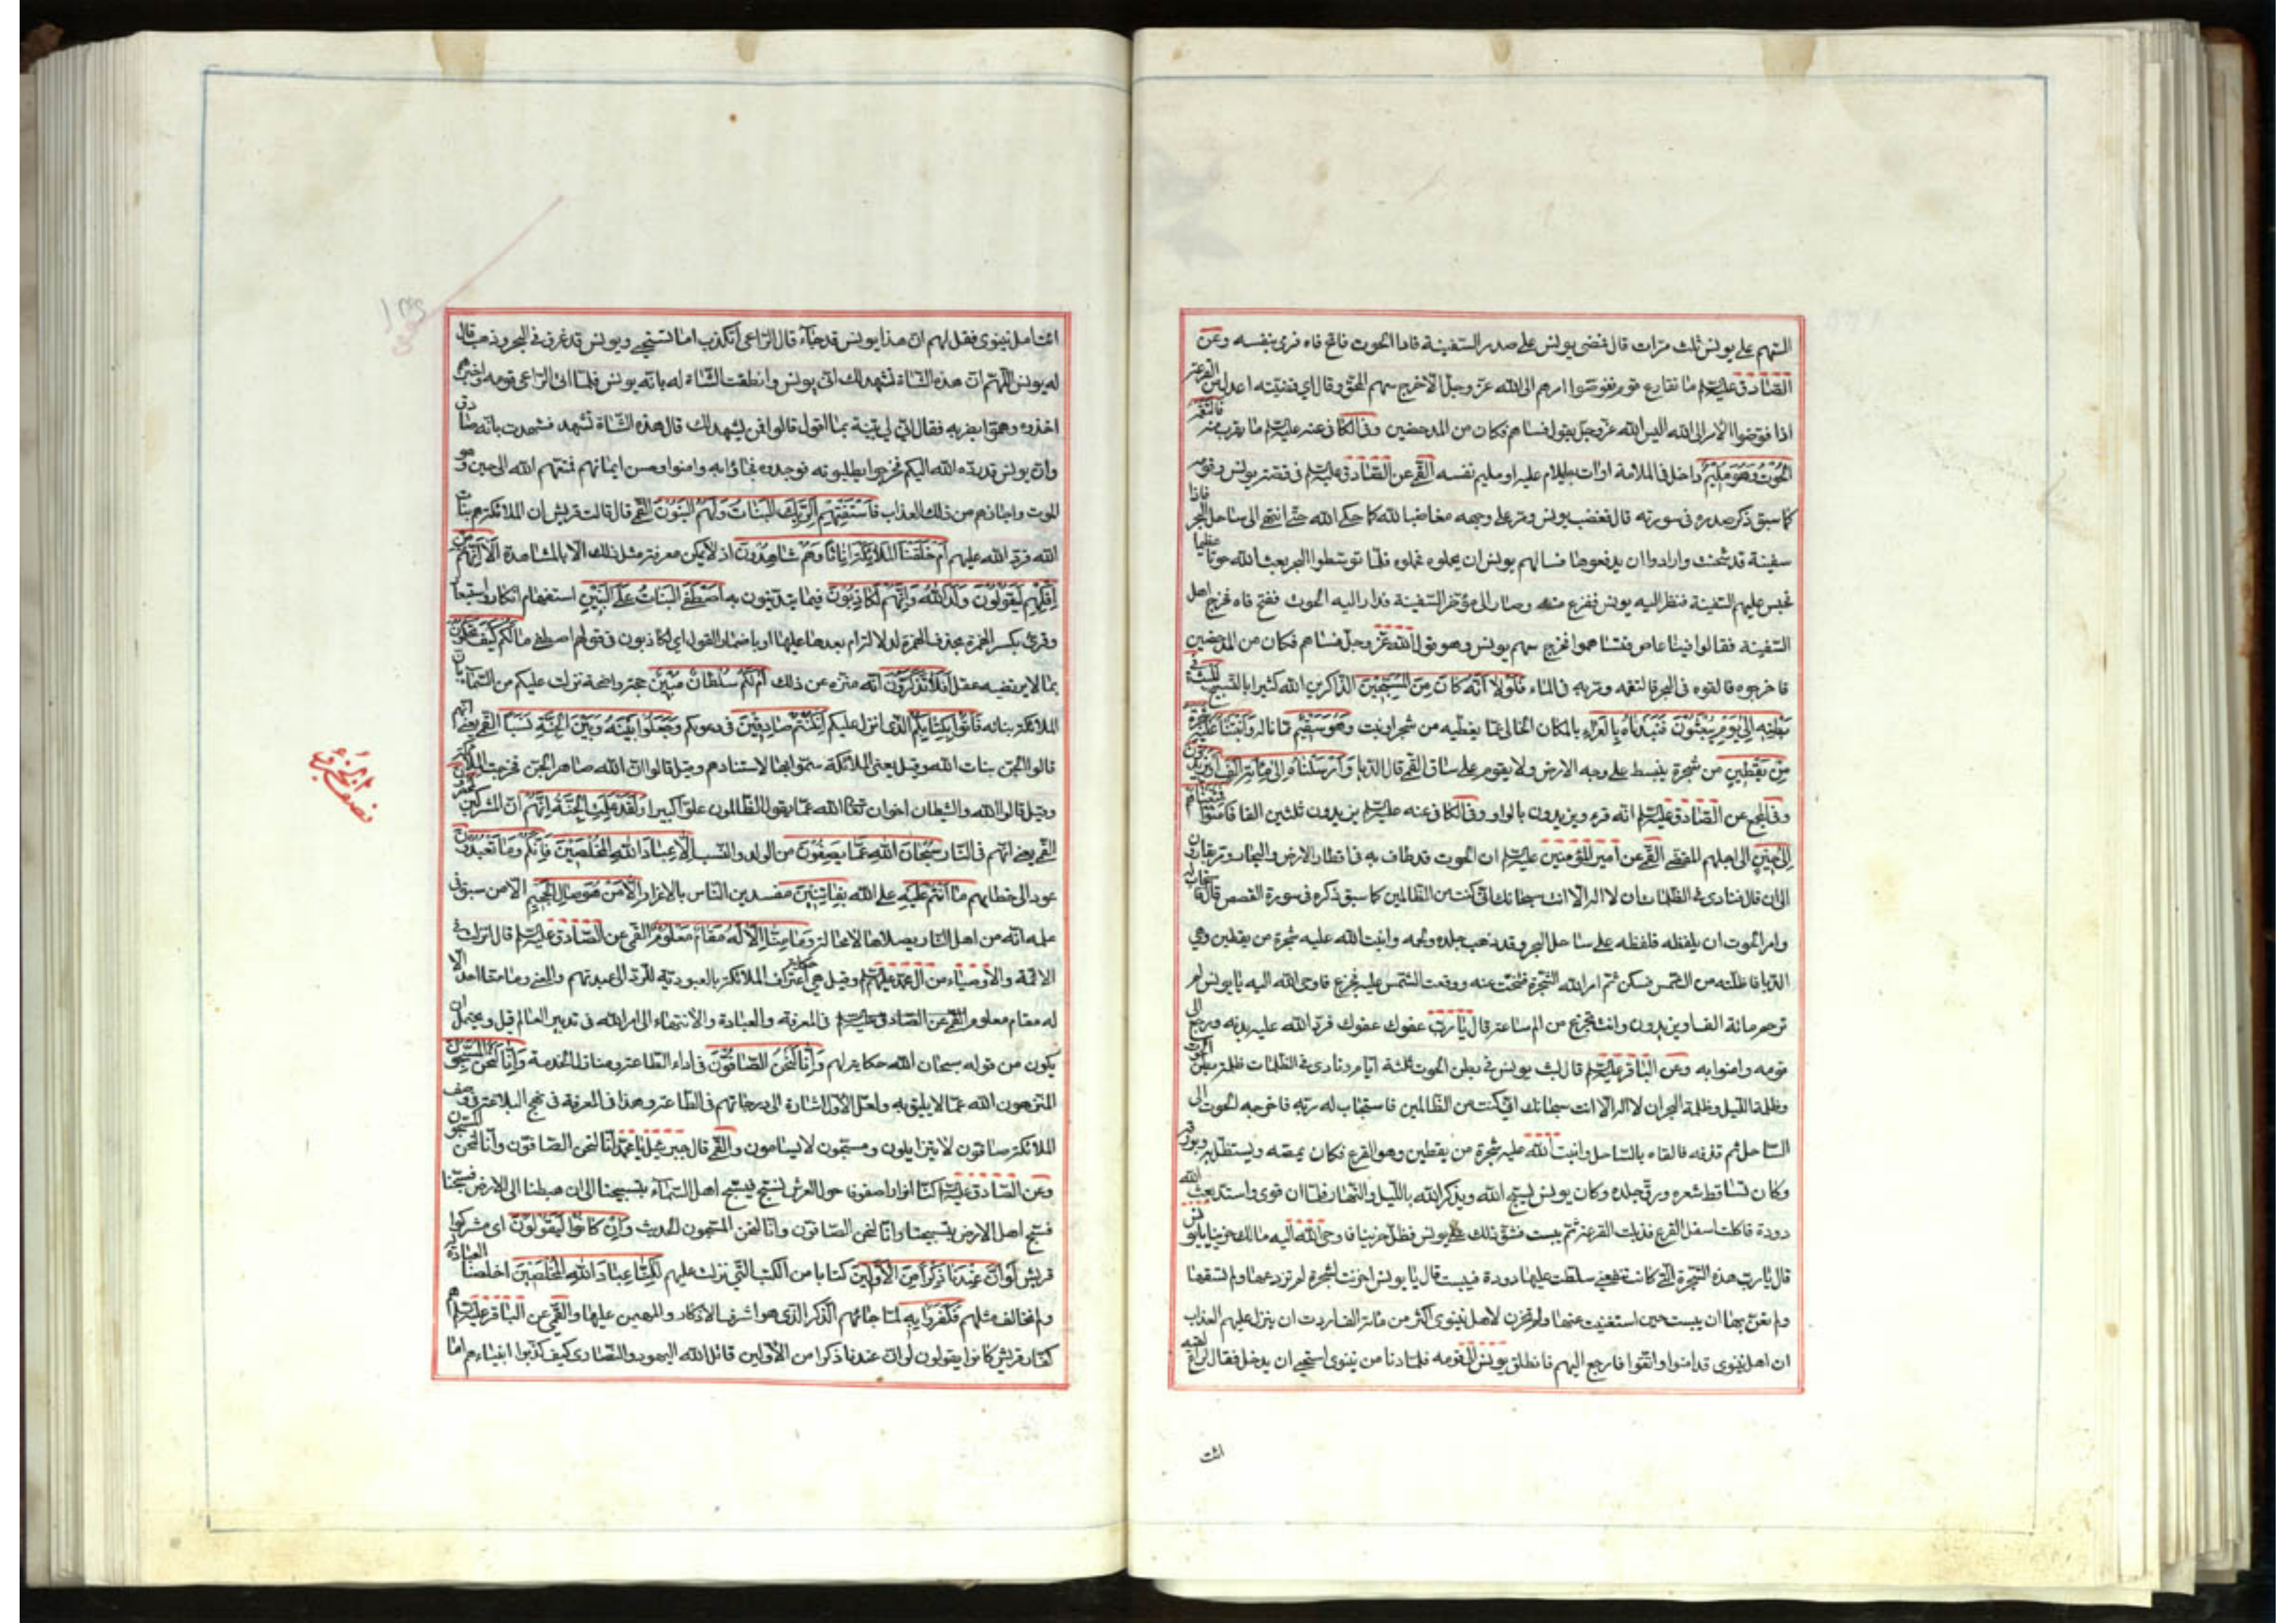 السهم على يونس ثلث مرات قال فمضى يونس على صدر السفينة فاذا الحوت فاتح فاه فرمى بنفسه وعن
الصادق عليه السلم ما تقارع قوم ففوضوا امرهم الى الله عز وجل الا خرج سهم المحق وقال اي قضيته اعدل من القرعة
اذا فوضوا الامر الى الله اليس الله عز وجل يقول فساهم فكان من المدحضين وفي الكافي عنه عليه السلم ما يقرب منه فالتقمه
الحوت وهو مليم داخل في الملامة او ات بما يلام عليه او مليم نفسه القمي عن الصادق عليه السلم في قصة يونس وقومه
كما سبق ذكر صدره في سورته قال فغضب يونس ومر على وجهه مغاضبا لله كما حكى الله حتى انتهى الى ساحل البحر فاذا
سفينة قد شحنت وارادوا ان يدفعوها فسالهم يونس ان يحملوه فحملوه فلما توسطوا البحر بعث الله حوتا عظيما
فحبس عليهم السفينة فنظر اليه يونس ففزع منه وصار الى مؤخر السفينة فدار اليه الحوت ففتح فاه فخرج اهل
السفينة فقالوا فينا عاص فتساهموا فخرج سهم يونس وهو قول الله عز وجل فساهم فكان من المدحضين
فاخرجوه فالقوه في البحر فالتقمه ومر به في الماء فلولا انه كان من المسبحين الذاكرين الله كثيرا بالتسبيح للبث في
بطنه الى يوم يبعثون فنبذناه بالعراء بالمكان الخالي عما يغطيه من شجر او نبت وهو سقيم مما ناله وانبتنا عليه شجرة
من يقطين من شجرة ينبسط على وجه الارض ولا يقوم على ساق القمي قال الدبا وارسلناه الى مائة الف او يزيدون
وفي المجمع عن الصادق عليه السلم انه قرء ويزيدون بالواو وفي الكافي عنه عليه السلم يزيدون ثلثين الفا فامنوا فمتعناهم
الى حين الى اجلهم المقضي القمي عن امير المؤمنين عليه السلم ان الحوت قد طاف به في اقطار الارض والبحار ومر بقارون
الى ان قال فنادى في الظلمات ان لا اله الا انت سبحانك اني كنت من الظالمين كما سبق ذكره في سورة القصص قال فاستجاب له
وامر الحوت ان يلفظه فلفظه على ساحل البحر وقد ذهب جلده ولحمه وانبت الله عليه شجرة من يقطين وهي
الدبا فاظلته من الشمس فسكن ثم امر الله الشجرة فتنحت عنه ووقعت الشمس عليه فجزع فاوحى الله اليه يا يونس لم
ترحم مائة الف او يزيدون وانت تجزع من الم ساعة قال يا رب عفوك عفوك فرد الله عليه بدنه ورجع الى
قومه وامنوا به وعن الباقر عليه السلم قال لبث يونس في بطن الحوت ثلثة ايام ونادى في الظلمات ظلمة بطن الحوت
وظلمة الليل وظلمة البحر ان لا اله الا انت سبحانك اني كنت من الظالمين فاستجاب له ربه فاخرجه الحوت الى
الساحل ثم قذفه فالقاه بالساحل وانبت الله عليه شجرة من يقطين وهو القرع فكان يمصه ويستظل به وبورقه
وكان تساقط شعره ورق جلده وكان يونس يسبح الله ويذكر الله بالليل والنهار فلما ان قوى واشتد بعث الله
دودة فاكلت اسفل القرع فذبلت القرعة ثم يبست فشق ذلك على يونس فظل حزينا فاوحى الله اليه مالك حزينا يا يونس
قال يا رب هذه الشجرة التي كانت تنفعني سلطت عليها دودة فيبست قال يا يونس احزنت لشجرة لم تزرعها ولم تسقها
ولم تعن بها ان يبست حين استغنيت عنها ولم تحزن لاهل نينوى اكثر من مائة الف اردت ان ينزل عليهم العذاب
ان اهل نينوى قد امنوا واتقوا فارجع اليهم فانطلق يونس الى قومه فلما دنا من نينوى استحيى ان يدخل فقال لراع لقيه
ائت
ائت اهل نينوى فقل لهم ان هذا يونس قد جاء قال الراعي اتكذب اما تستحيي ويونس قد غرق في البحر وذهب قال
له يونس اللهم ان هذه الشاة تشهد لك اني يونس وانطقت الشاة له بانه يونس فلما اتى الراعي قومه واخبرهم
اخذوه وهموا بضربه فقال ان لي بينة بما اقول قالوا فمن يشهد لك قال هذه الشاة تشهد فشهدت بانه صادق
وان يونس قد رده الله اليكم فخرجوا يطلبونه فوجدوه فجاؤا به وامنوا وحسن ايمانهم فمتعهم الله الى حين وهو
الموت واجارهم من ذلك العذاب فاستفتهم الربك البنات ولهم البنون القمي قال قالت قريش ان الملائكة هم بنات
الله فرد الله عليهم ام خلقنا الملائكة اناثا وهم شاهدون اذ لا يمكن معرفة مثل ذلك الا بالمشاهدة الا انهم من
افكهم ليقولون ولد الله وانهم لكاذبون فيما يتدينون به اصطفى البنات على البنين استفهام انكار واستبعاد
وقرئ بكسر الهمزة بحذف الهمزة لدلالة ام بعدها عليها او باضمار القول اي لكاذبون في قولهم اصطفى مالكم كيف تحكمون
بما لا يرتضيه عقل افلا تذكرون انه منزه عن ذلك ام لكم سلطان مبين حجة واضحة نزلت عليكم من السماء بان
الملائكة بناته فاتوا بكتابكم الذي انزل عليكم ان كنتم صادقين في دعوكم وجعلوا بينه وبين الجنة نسبا القمي يعني انهم
قالوا الجن بنات الله وقيل يعني الملائكة سموا بها لاستتارهم وقيل قالوا ان الله صاهر الجن فخرجت الملائكة
وقيل قالوا الله والشيطان اخوان تعالى الله عما يقول الظالمون علوا كبيرا ولقد علمت الجنة انهم ان المشركين لمحضرون
القمي يعني انهم في النار سبحان الله عما يصفون من الولد والنسب الا عباد الله المخلصين فانكم وما تعبدون
عود الى خطابهم ما انتم عليه على الله بفاتنين مفسدين الناس بالاغراء الا من هو صال الجحيم الا من سبق في
علمه انه من اهل النار يصلاها لا محالة وما منا الا له مقام معلوم القمي عن الصادق عليه السلم قال نزلت في
الائمة والاوصياء من ال محمد عليهم السلم وقيل هي حكاية اعتراف الملائكة بالعبودية للرد الى عبدتهم والمعنى وما منا احد الا
له مقام معلوم القمي عن الصادق عليه السلم في المعرفة والعبادة والانتهاء الى امر الله في تدبير العالم قيل ويحتمل ان
يكون من قوله سبحان الله حكاية لهم وانا لنحن الصافون في اداء الطاعة ومنازل الخدمة وانا لنحن المسبحون
المنزهون الله عما لا يليق به ولعل الاول اشارة الى درجاتهم في الطاعة وهذا في المعرفة في نهج البلاغة في وصف
الملائكة صافون لا يتزايلون ومسبحون لا يسامون والقمي قال جبرئيل يا محمد انا لنحن الصافون وانا لنحن المسبحون
وعن الصادق عليه السلم كنا انوارا صفوفا حول العرش نسبح فيسبح اهل السماء بتسبيحنا الى ان هبطنا الى الارض فسبحنا
فسبح اهل الارض بتسبيحنا وانا لنحن الصافون وانا لنحن المسبحون الحديث وان كانوا ليقولون اي مشركوا
قريش لو ان عندنا ذكرا من الاولين كتابا من الكتب التي نزلت عليهم لكنا عباد الله المخلصين اخلصنا العبادة له
ولم نخالف مثلهم فكفروا به لما جائهم الذكر الذي هو اشرف الاذكار والمهيمن عليها والقمي عن الباقر عليه السلم هم
كفار قريش كانوا يقولون لو ان عندنا ذكرا من الاولين قاتل الله اليهود والنصارى كيف كذبوا انبيائهم اما
نصف الجزو